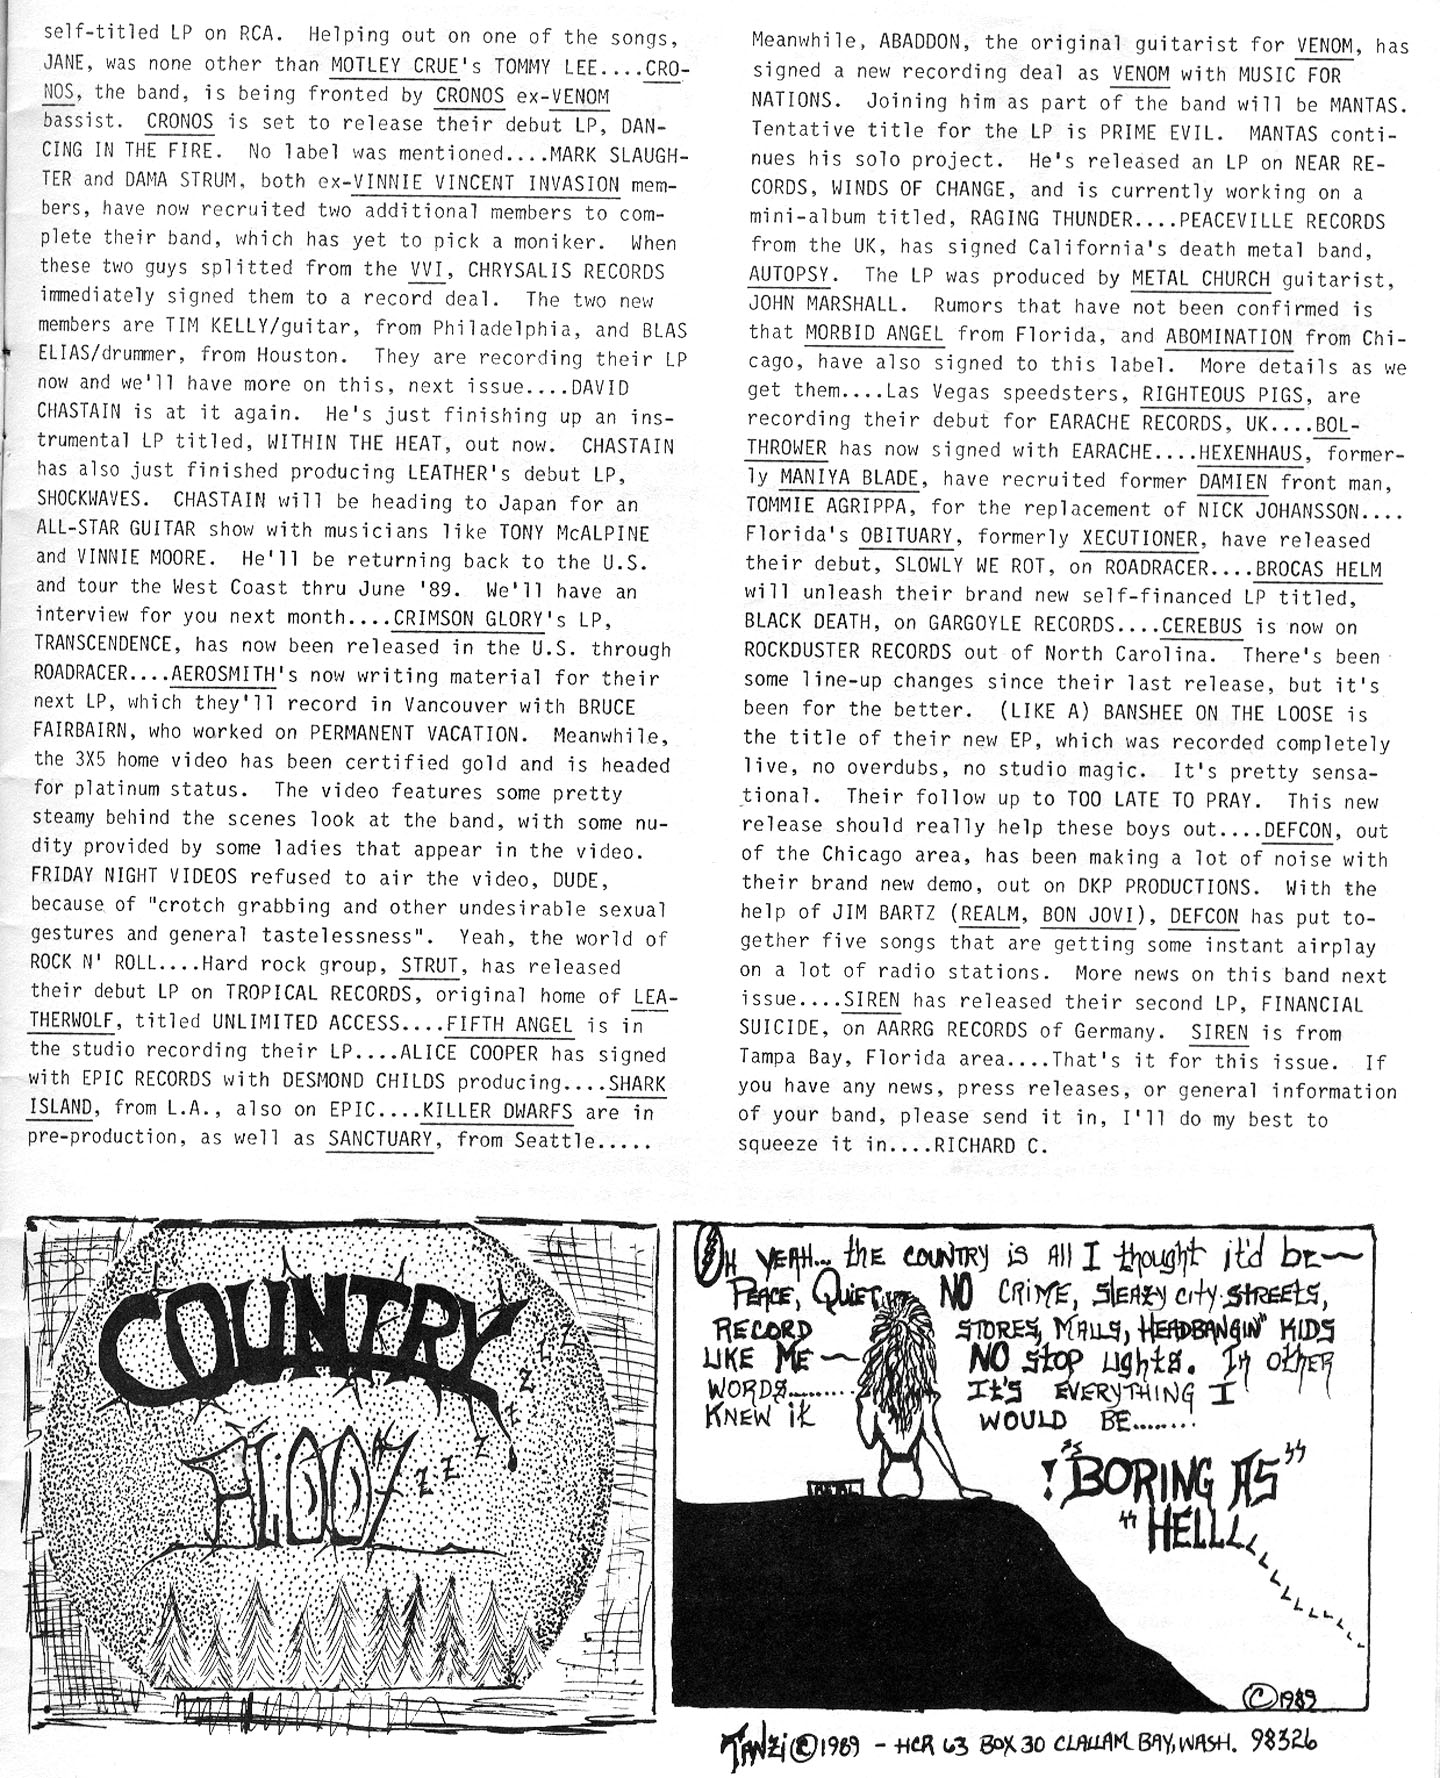 self-titled LP on RCA.  Helping out on one of the songs,
JANE, was none other than MOTLEY CRUE's TOMMY LEE....CRO-
NOS, the band, is being fronted by CRONOS ex-VENOM
bassist.  CRONOS is set to release their debut LP, DAN-
CING IN THE FIRE.  No label was mentioned....MARK SLAUGH-
TER and DAMA STRUM, both ex-VINNIE VINCENT INVASION mem-
bers, have now recruited two additional members to com-
plete their band, which has yet to pick a moniker.  When
these two guys splitted from the VVI, CHRYSALIS RECORDS
immediately signed them to a record deal.  The two new
members are TIM KELLY/guitar, from Philadelphia, and BLAS
ELIAS/drummer, from Houston.  They are recording their LP
now and we'll have more on this, next issue....DAVID
CHASTAIN is at it again.  He's just finishing up an ins-
trumental LP titled, WITHIN THE HEAT, out now.  CHASTAIN
has also just finished producing LEATHER's debut LP,
SHOCKWAVES.  CHASTAIN will be heading to Japan for an
ALL-STAR GUITAR show with musicians like TONY McALPINE
and VINNIE MOORE.  He'll be returning back to the U.S.
and tour the West Coast thru June '89.  We'll have an
interview for you next month....CRIMSON GLORY's LP,
TRANSCENDENCE, has now been released in the U.S. through
ROADRACER....AEROSMITH's now writing material for their
next LP, which they'll record in Vancouver with BRUCE
FAIRBAIRN, who worked on PERMANENT VACATION.  Meanwhile,
the 3X5 home video has been certified gold and is headed
for platinum status.  The video features some pretty
steamy behind the scenes look at the band, with some nu-
dity provided by some ladies that appear in the video.
FRIDAY NIGHT VIDEOS refused to air the video, DUDE,
because of "crotch grabbing and other undesirable sexual
gestures and general tastelessness".  Yeah, the world of
ROCK N' ROLL....Hard rock group, STRUT, has released
their debut LP on TROPICAL RECORDS, original home of LEA-
THERWOLF, titled UNLIMITED ACCESS....FIFTH ANGEL is in
the studio recording their LP....ALICE COOPER has signed
with EPIC RECORDS with DESMOND CHILDS producing....SHARK
ISLAND, from L.A., also on EPIC....KILLER DWARFS are in
pre-production, as well as SANCTUARY, from Seattle.....
Meanwhile, ABADDON, the original guitarist for VENOM, has
signed a new recording deal as VENOM with MUSIC FOR
NATIONS.  Joining him as part of the band will be MANTAS.
Tentative title for the LP is PRIME EVIL.  MANTAS conti-
nues his solo project.  He's released an LP on NEAR RE-
CORDS, WINDS OF CHANGE, and is currently working on a
mini-album titled, RAGING THUNDER....PEACEVILLE RECORDS
from the UK, has signed California's death metal band,
AUTOPSY.  The LP was produced by METAL CHURCH guitarist,
JOHN MARSHALL.  Rumors that have not been confirmed is
that MORBID ANGEL from Florida, and ABOMINATION from Chi-
cago, have also signed to this label.  More details as we
get them....Las Vegas speedsters, RIGHTEOUS PIGS, are
recording their debut for EARACHE RECORDS, UK....BOL-
THROWER has now signed with EARACHE....HEXENHAUS, former-
ly MANIYA BLADE, have recruited former DAMIEN front man,
TOMMIE AGRIPPA, for the replacement of NICK JOHANSSON....
Florida's OBITUARY, formerly XECUTIONER, have released
their debut, SLOWLY WE ROT, on ROADRACER....BROCAS HELM
will unleash their brand new self-financed LP titled,
BLACK DEATH, on GARGOYLE RECORDS....CEREBUS is now on
ROCKDUSTER RECORDS out of North Carolina.  There's been
some line-up changes since their last release, but it's
been for the better.  (LIKE A) BANSHEE ON THE LOOSE is
the title of their new EP, which was recorded completely
live, no overdubs, no studio magic.  It's pretty sensa-
tional.  Their follow up to TOO LATE TO PRAY.  This new
release should really help these boys out....DEFCON, out
of the Chicago area, has been making a lot of noise with
their brand new demo, out on DKP PRODUCTIONS.  With the
help of JIM BARTZ (REALM, BON JOVI), DEFCON has put to-
gether five songs that are getting some instant airplay
on a lot of radio stations.  More news on this band next
issue....SIREN has released their second LP, FINANCIAL
SUICIDE, on AARRG RECORDS of Germany.  SIREN is from
Tampa Bay, Florida area....That's it for this issue.  If
you have any news, press releases, or general information
of your band, please send it in, I'll do my best to
squeeze it in....RICHARD C.
COUNTRY
z z z z z z z z
OH YEAH... the COUNTRY is All I thought it'd be~
PEACE, QuiET, NO CRIME, SlEAZy city streets,
RECORD STORES, MAlls, HEADBANGIN" KIDS
LIKE ME ~ NO stop lights. In other
WORDS......... It's EVERYTHING I
KNEW it WOULD BE........
! "BORING AS"
"HELLLLLLLLLLLLLL
METAL
©1989
TANZi ©1989 - HCR 63 BOX 30 CLALLAM BAY, WASH. 98326